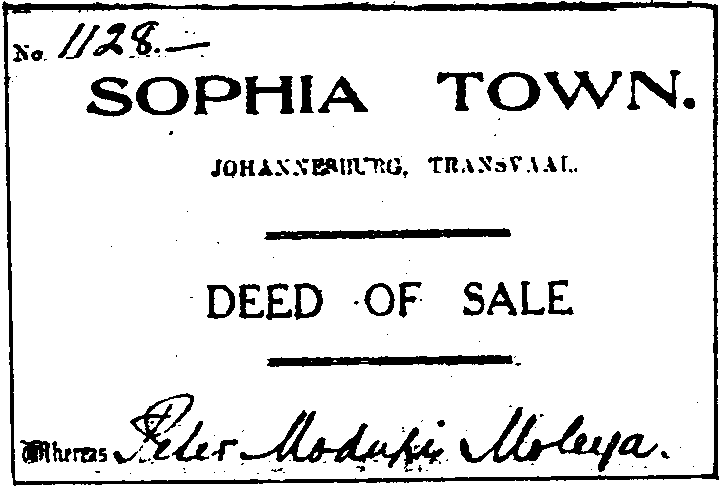 No. 1128.—
SOPHIA TOWN.
JOHANNESBURG, TRANSVAAL.
DEED OF SALE
Whereas Peter